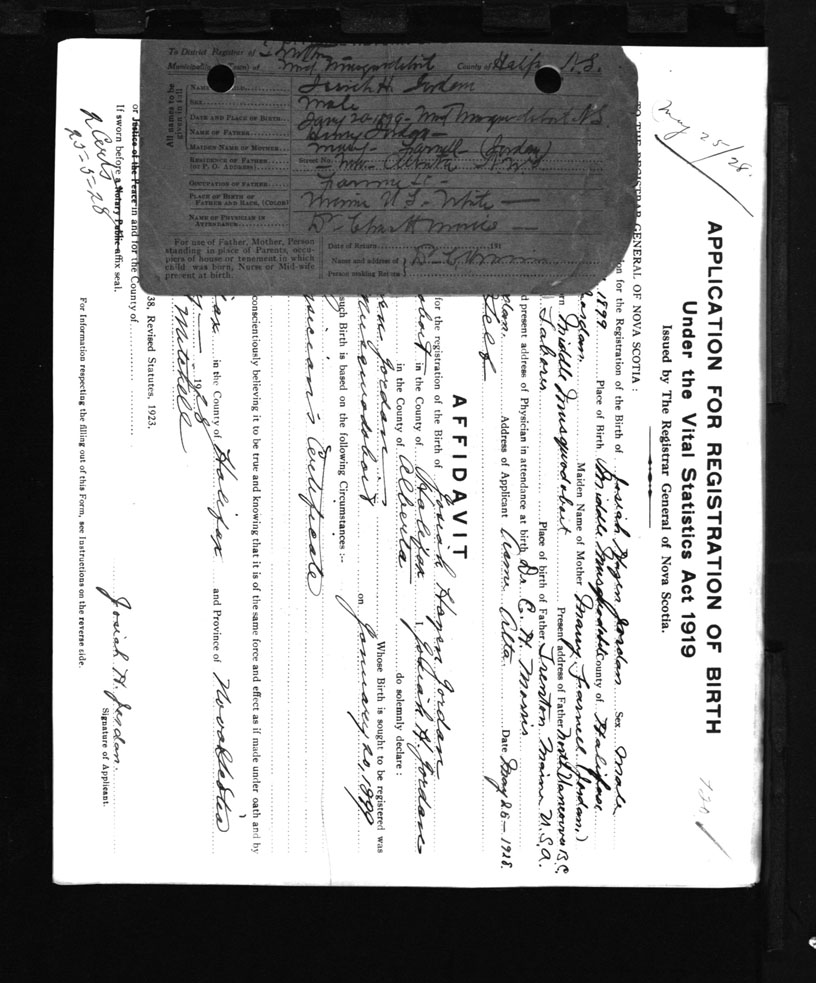 To District Registrar of
Municipality (or Town) of Mid Musquodoboit County of Halifx N.S.
All names to be
NAME
Josiah H. Jordan
SEX
Male
DATE AND PLACE OF BIRTH
Jany 20 1899 - Mid Musquodoboit N.S
NAME OF FATHER
Henry Jordan
MAIDEN NAME OF MOTHER
Mary Farnell (Jordan)
RESIDENCE OF FATHER (OR P. O. ADDRESS)
Street No. Alberta
OCCUPATION OF FATHER
Farmer
PLACE OF BIRTH OF FATHER AND RACE, (COLOR)
Maine U S - White
NAME OF PHYSICIAN IN ATTENDANCE
Dr Chas H Morris
For use of Father, Mother, Person standing in place of Parents, occupiers of house or tenement in which child was born, Nurse or Mid-wife present at birth.
Date of Return 191
Name and address of Person making Return
May 25/28.
APPLICATION FOR REGISTRATION OF BIRTH
Under the Vital Statistics Act 1919
Issued by The Registrar General of Nova Scotia.
TO THE REGISTRAR GENERAL OF NOVA SCOTIA :
ion for the Registration of the Birth of Josiah Hazen Jordan Sex Male
1899 Place of Birth Middle Musquodoboit County of Halifax
Jordan. Maiden Name of Mother Mary Farnell (Jordan,)
rn Middle Musquodoboit Present address of Father North Vancouver B.C.
Laborer Place of birth of Father Trenton Maine U.S.A.
d present address of Physician in attendance at birth Dr. C. H. Morris
Address of Applicant Alta. Date May 25 - 1928.
AFFIDAVIT
for the registration of the Birth of Josiah Hazen Jordan
in the County of Halifax I, Josiah H. Jordan
in the County of Alberta do solemnly declare :
Jordan Whose Birth is sought to be registered was
Musquodoboit on January 20, 1899
such Birth is based on the following Circumstances :-
Physician's Certificate
conscientiously believing it to be true and knowing that it is of the same force and effect as if made under oath and by
38, Revised Statutes, 1923.
in the County of Halifax and Province of Nova Scotia
1928
Mitchell
Josiah H. Jordan.
Signature of Applicant.
or Justice of the Peace in and for the County of
If sworn before a Notary Public affix seal.
2 Certs
25-5-28
For Information respecting the filling out of this Form, see Instructions on the reverse side.